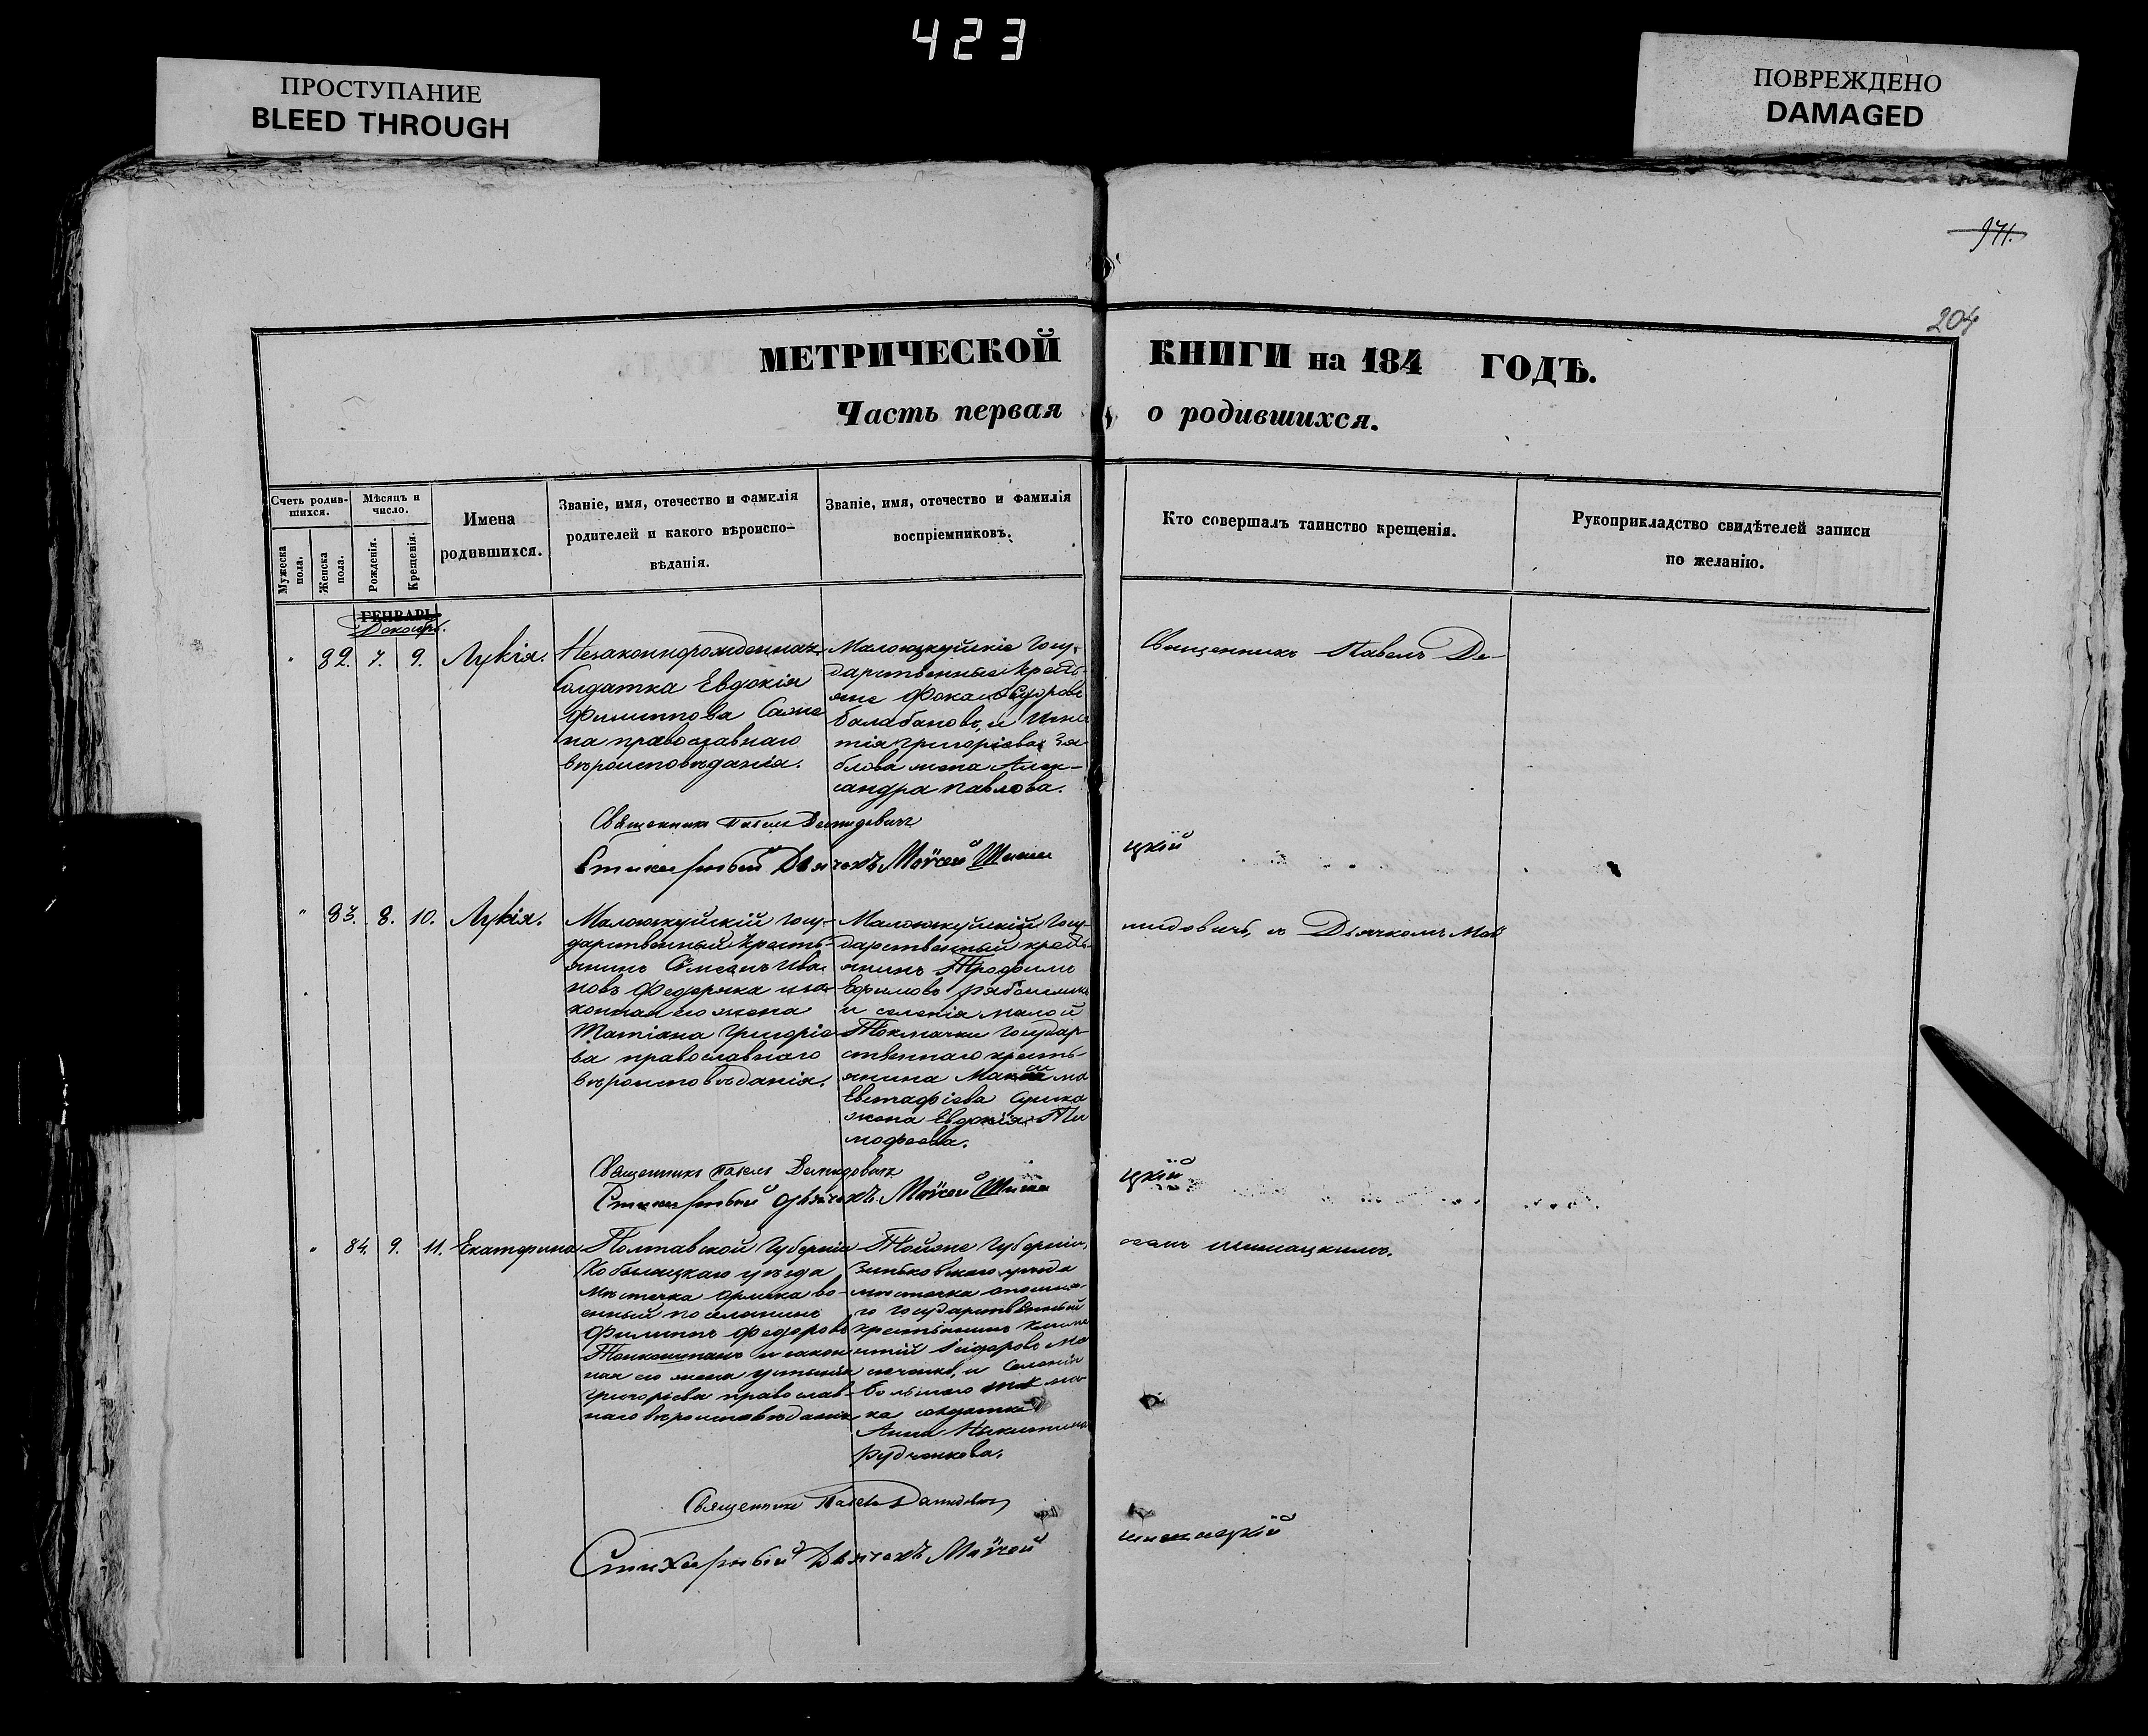 423
ПРОСТУПАНИЕ
BLEED THROUGH
ПОВРЕЖДЕНО
DAMAGED
171.
204
МЕТРИЧЕСКОЙ КНИГИ на 184 ГОДѢ.
Часть первая о родившихся.
Счетъ родив-
шихся.
Мужеска
пола.
Женска
пола.
Мѣсяцъ и
число.
Рожденія.
Крещенія.
Имена
родившихся.
Званіе, имя, отечество и фамилія
родителей и какого вѣроиспо-
вѣданія.
Званіе, имя, отечество и фамилія
воспріемниковъ.
Кто совершалъ таинство крещенія.
Рукоприкладство свидѣтелей записи
по желанію.
ГЕНВАРЬ
Декабрь.
" 82. 7. 9. Лукія.
Незаконнорожденная
Солдатка Евдокія
Филиппова
на православнаго
вѣроисповѣданія.
Малотокмацкіе Госу-
дарственные кресть-
яне Фока Сидоровъ
Балабановъ, и Игна
тія Григоріева Зя
блова жена Алек-
сандра Павлова.
Священникъ Павелъ Де-
Священникъ Павелъ Демидовичъ
Стихарный Дьячекъ Моѵсей Шина
цкій
" 83. 8. 10. Лукія.
Госу-
дарственный Кресть-
янинъ Симеонъ Ива
новъ Федоряка и за
конная его жена
Татіана Григоріе
ва православнаго
вѣроисповѣданія.
Госу-
дарственный кресть-
янинъ Трофимъ
Ефимовъ
и селенія малой
Токмачки Государ-
ственнаго кресть-
янина Максима
Евстафіева
жена Евдокія Ти
мофеева.
мидовичъ, съ Дьячкомъ Мой
Священникъ Павелъ Демидовичъ
Стихарный Дьячекъ Моѵсей Шина
цкій
" 84. 9. 11. Екатерина
Полтавской Губерніи
Кобыляцкаго уѣзда
мѣстечка Орлика во-
енный поселянинъ
Филиппъ Федоровъ
и закон
ная его жена Устинія
Григорієва православ-
наго вѣроисповѣданія
Тойже Губерніи,
Зиньковскаго уѣзда
мѣстечка Опошня-
го государственный
крестьянинъ
Сидоровъ
и Селенія
Большого Ток ма-
ка солдатка
Анна Никитина
Рудченкова.
сеемъ Шинацкимъ.
Священникъ Павелъ Демидовичъ
Стихарный Дьячекъ Моѵсей
Шинацкій